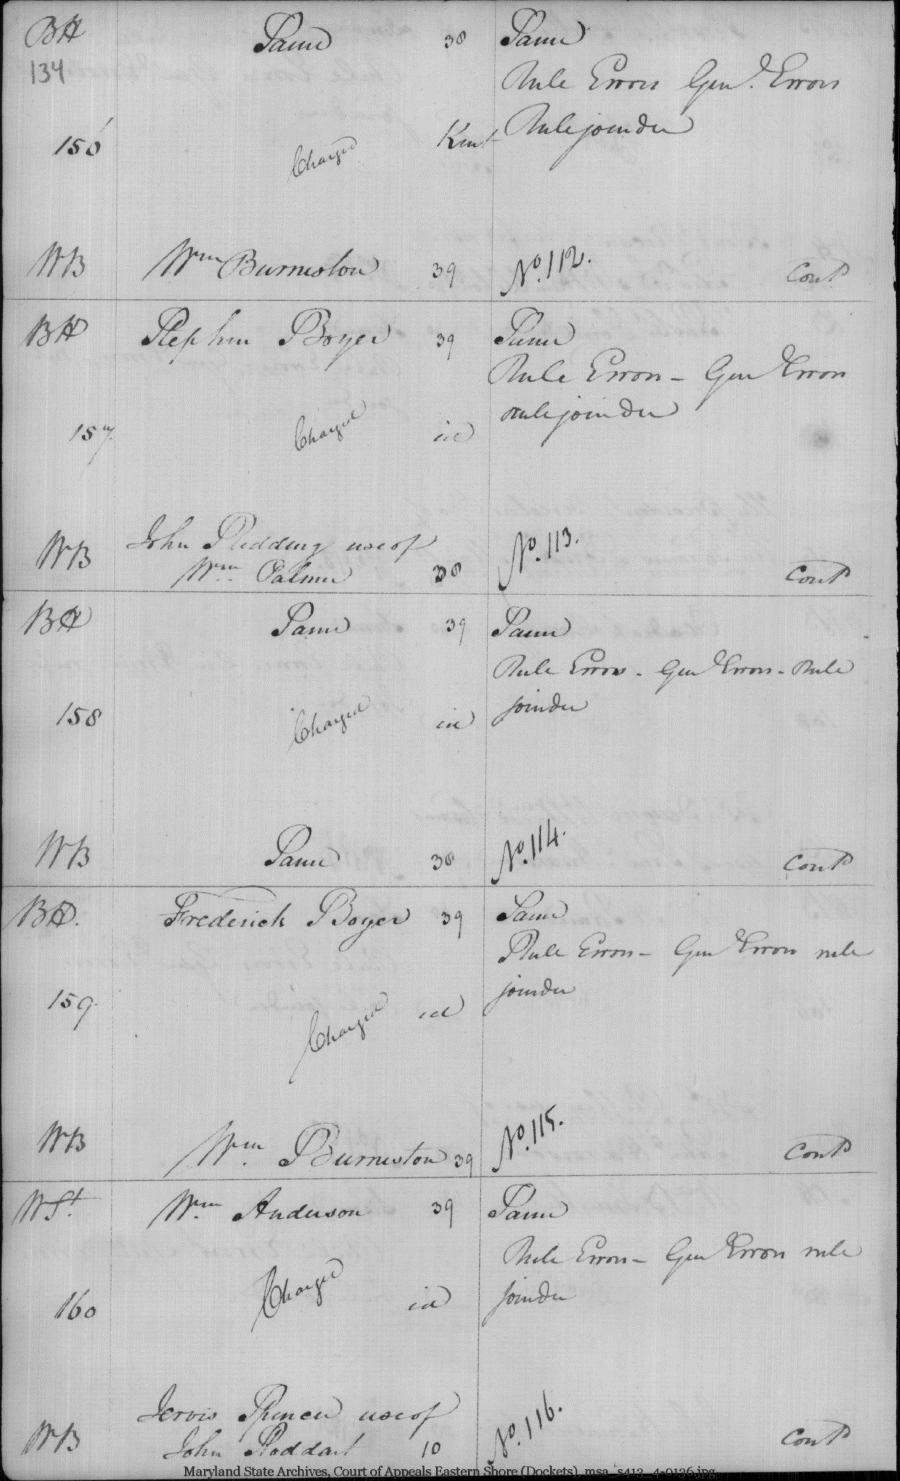 BH Same 38 Same
134 Rule Errors Genl. Errors
Rule joinder
156 Charged Kent
WB Wm Burneston 39 No. 112. Contd
BH Stephen Boyer 39 Same
Rule Errors - Genl Errors
rule joinder
157. Charged id
WB John Redding use of No. 113.
Wm. Palmer 38 Contd
BH Same 39 Same
Rule Errors - Genl Errors - Rule
joinder
158 Charged id
WB Same 38 No. 114. Contd
BH. Frederick Boyer 39 Same
Rule Errors - Genl Errors rule
joinder
159. Charged id
WB Wm Burneston 39 No. 115. Contd
WSt Wm. Anderson 39 Same
Rule Errors - Genl Errors rule
joinder
160 Charged id
Jervis Spencer use of No. 116.
WB John Stoddart 10 Contd
Maryland State Archives, Court of Appeals Eastern Shore (Dockets), msa_s412_4-0126.jpg